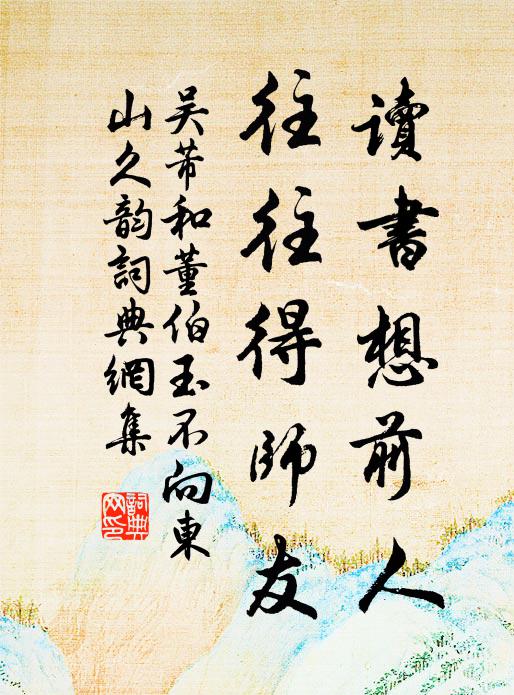 讀書想前人
往往得師友
吳芾和董伯玉不向東
山久韵詞典網集
詞典
网印